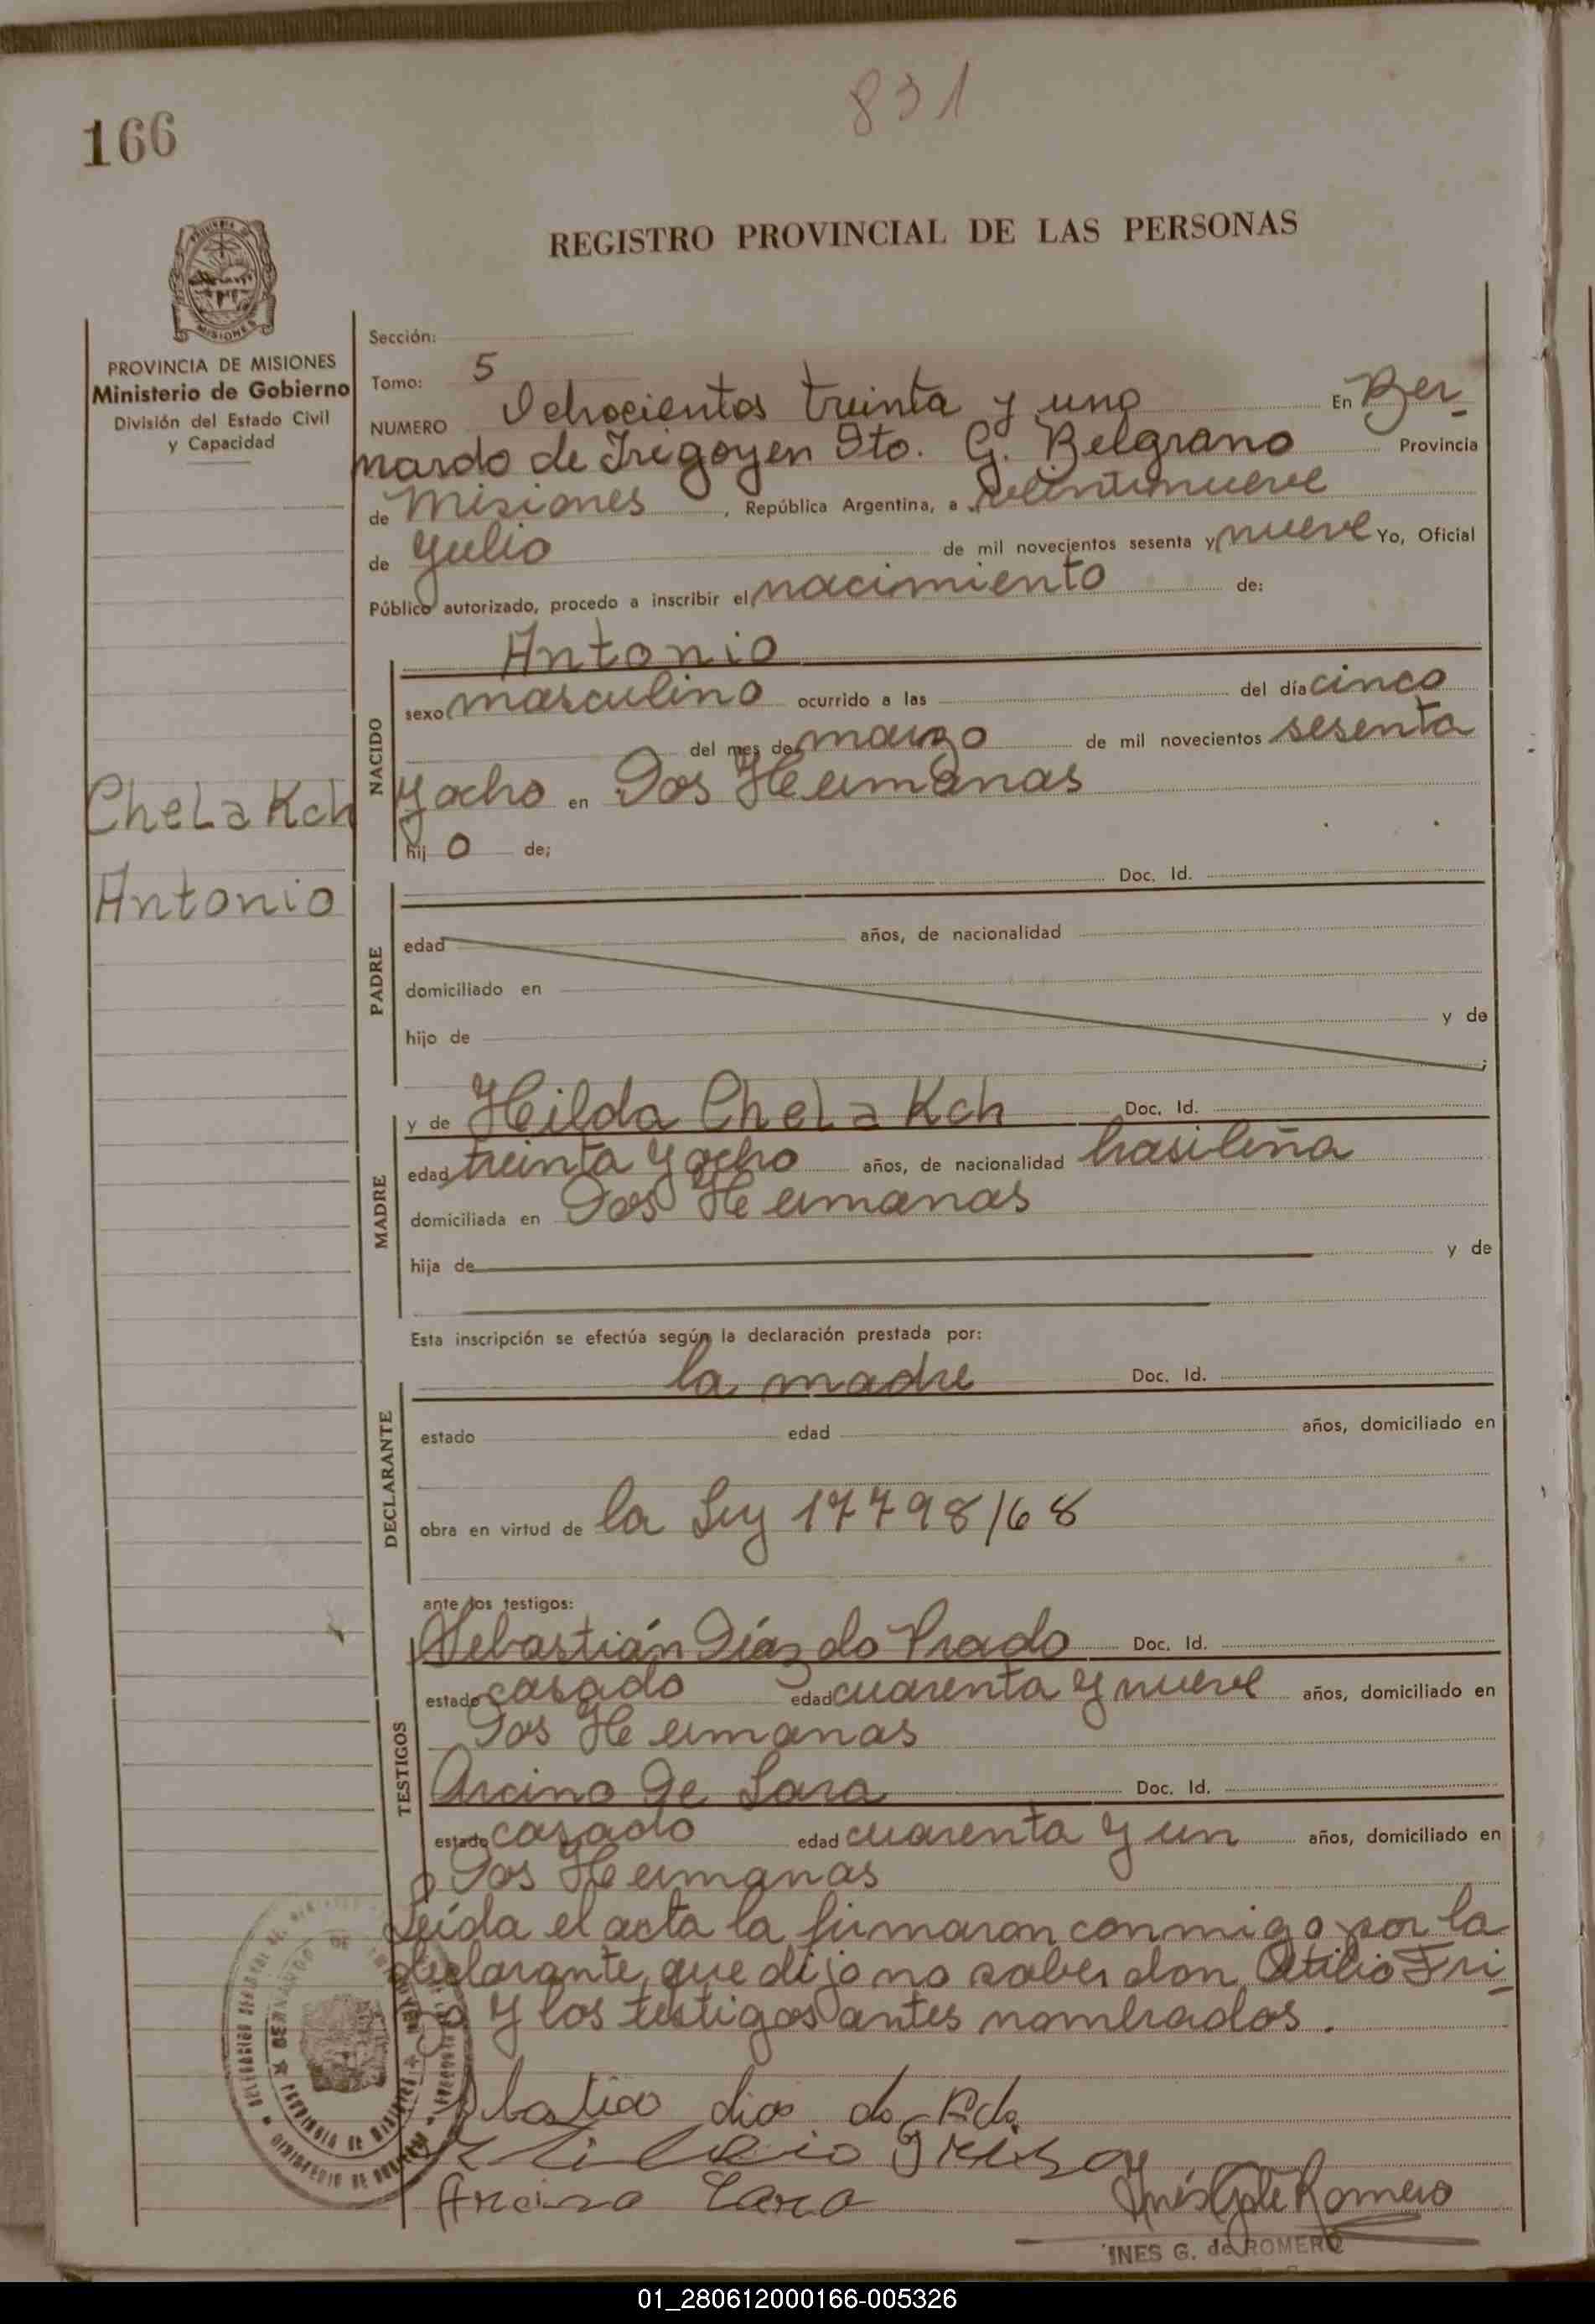 831
166
REGISTRO PROVINCIAL DE LAS PERSONAS
MISIONES
PROVINCIA DE MISIONES
Ministerio de Gobierno
División del Estado Civil
y Capacidad
Chelakch
Antonio
Sección:
Tomo: 5
NUMERO Ochocientos treinta y uno En Ber-
nardo de Irigoyen Dto. G. Belgrano Provincia
de Misiones, República Argentina, a veintinueve
de Julio de mil novecientos sesenta y nueve Yo, Oficial
Público autorizado, procedo a inscribir el nacimiento de:
NACIDO
Antonio
sexo masculino ocurrido a las del día cinco
del mes de marzo de mil novecientos sesenta
y ocho en Dos Hermanas
hijo de;
PADRE
Doc. Id.
edad años, de nacionalidad
domiciliado en
hijo de y de
MADRE
y de Hilda Chelakch Doc. Id.
edad treinta y ocho años, de nacionalidad brasileña
domiciliada en Dos Hermanas
hija de y de
Esta inscripción se efectúa según la declaración prestada por:
DECLARANTE
la madre Doc. Id.
estado edad años, domiciliado en
obra en virtud de la Ley 17798/68
ante los testigos:
TESTIGOS
Sebastián Díaz do Prado Doc. Id.
estado casado edad cuarenta y nueve años, domiciliado en
Dos Hermanas
Arcino De Lara Doc. Id.
estado casado edad cuarenta y un años, domiciliado en
Dos Hermanas
Leída el acta la firmaron conmigo por la
declarante, que dijo no saber don Atilio Fri-
y los testigos antes nombrados.
do
Lara
Inés G. de Romero
INES G. de ROMERO
01_280612000166-005326